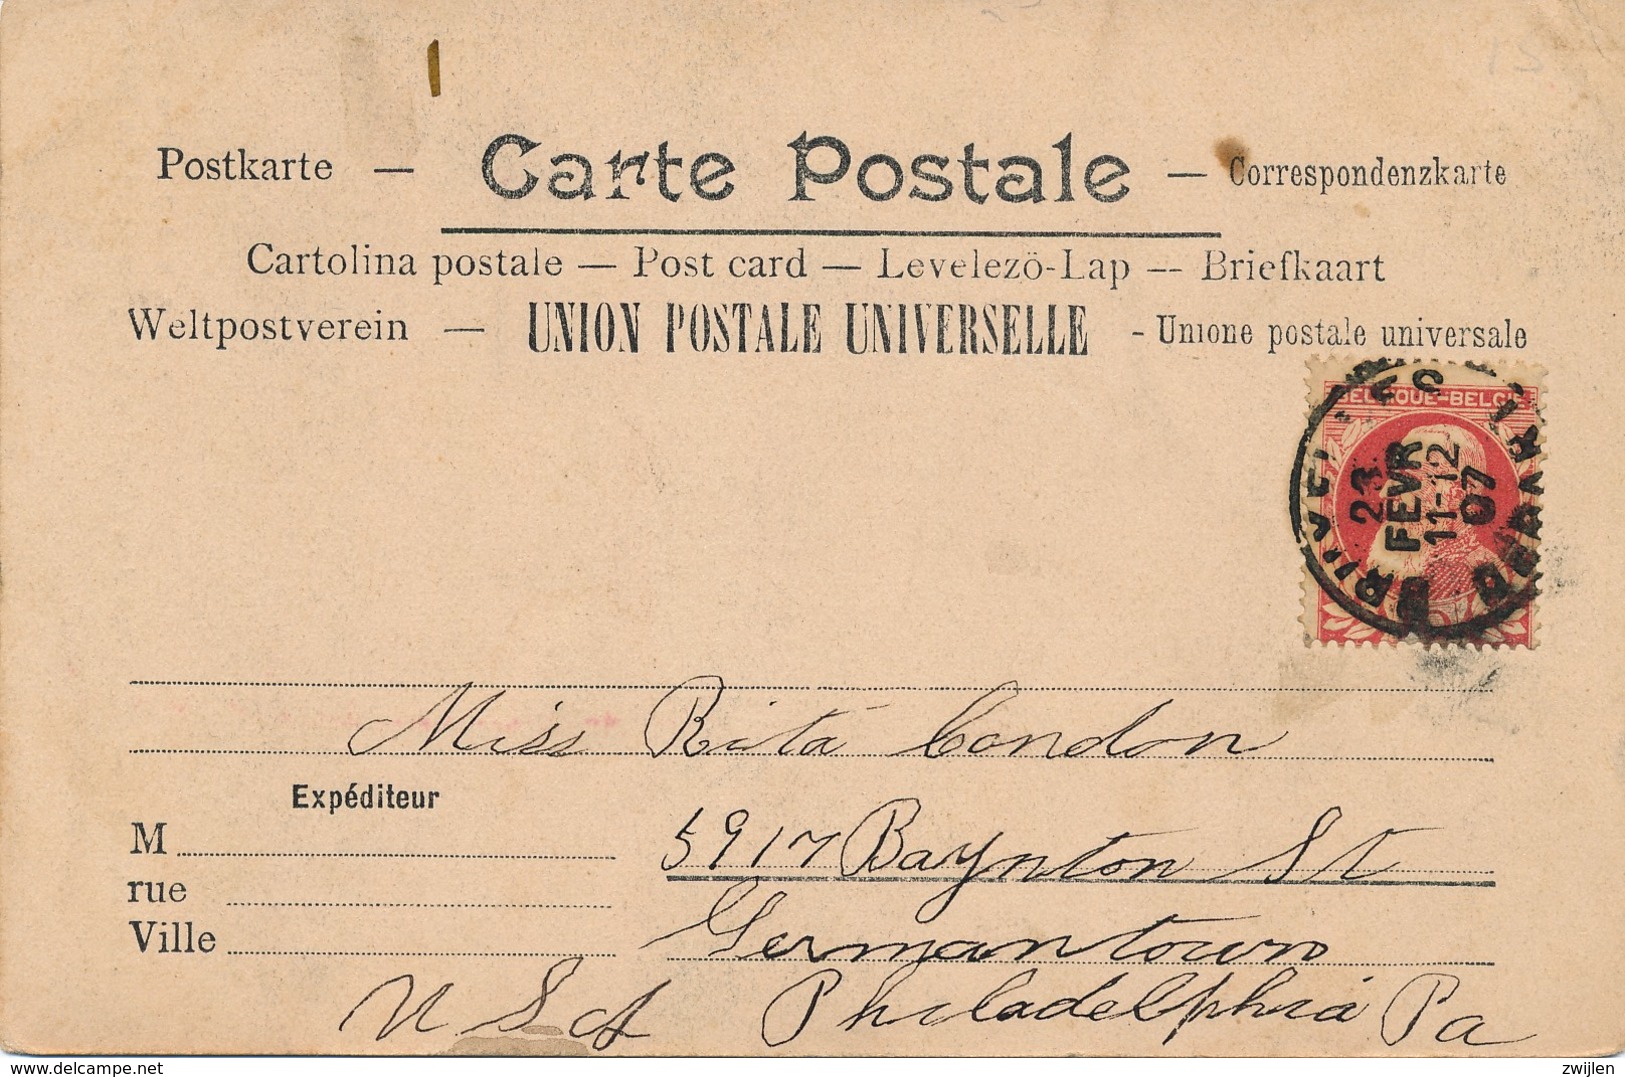 Postkarte — Carte Postale — Correspondenzkarte
Cartolina postale — Post card — Levelezö-Lap -- Briefkaart
Weltpostverein — UNION POSTALE UNIVERSELLE - Unione postale universale
BELGIQUE-BELGIË
23
FEVR
11-12
07
Miss Rita Condon
Expéditeur
M
rue
Ville
5917 Baynton St
Germantown
Philadelphia Pa
U S of A
www.delcampe.net
zwijlen